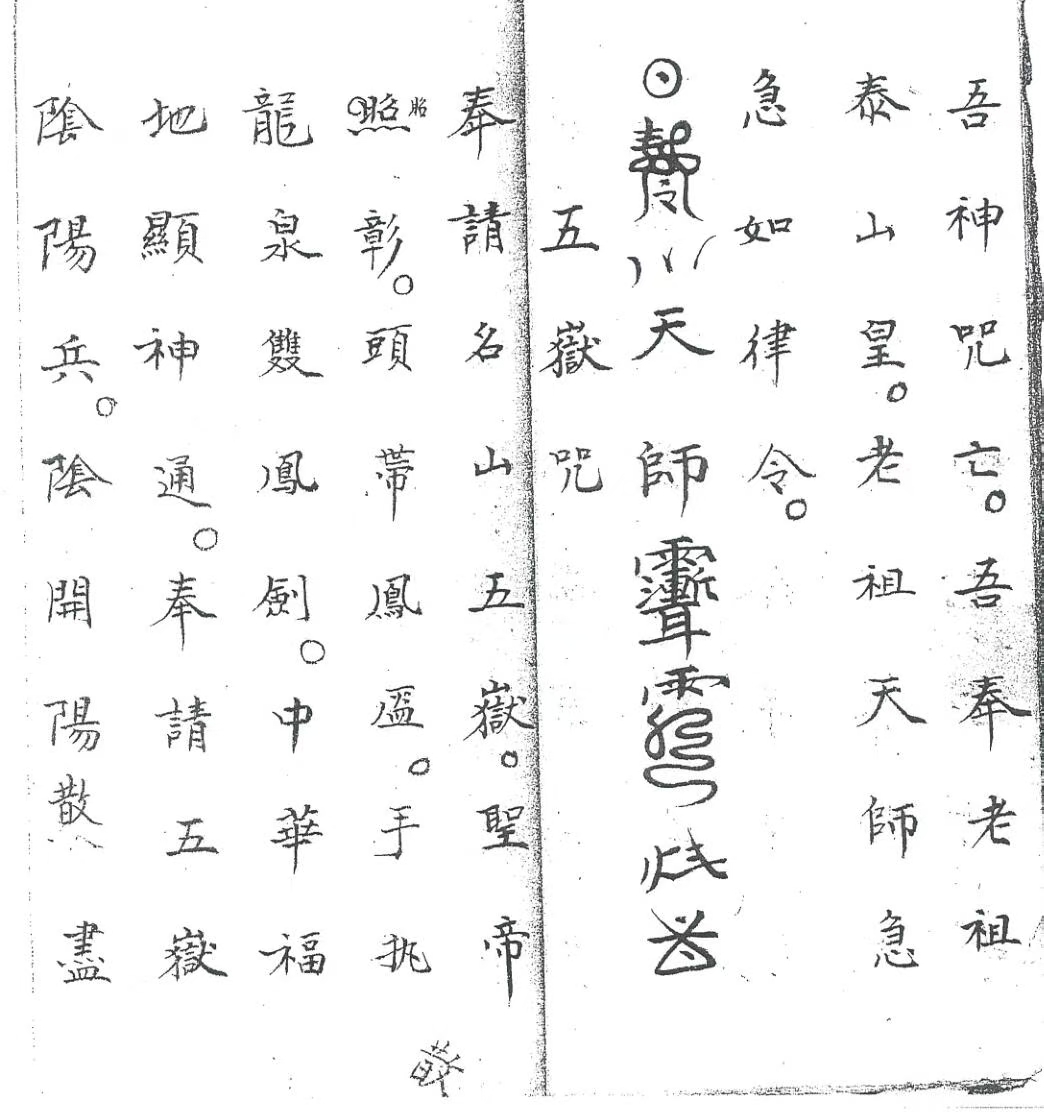 吾神咒亡。吾奉老祖
泰山皇。老祖天師急
急如律令。
天師
五嶽咒
奉請名山五嶽。聖帝
照昭彰。頭帶鳳盔。手执
龍泉雙鳳劍。中華福
地顯神通。奉請五嶽
陰陽兵。陰開陽散盡